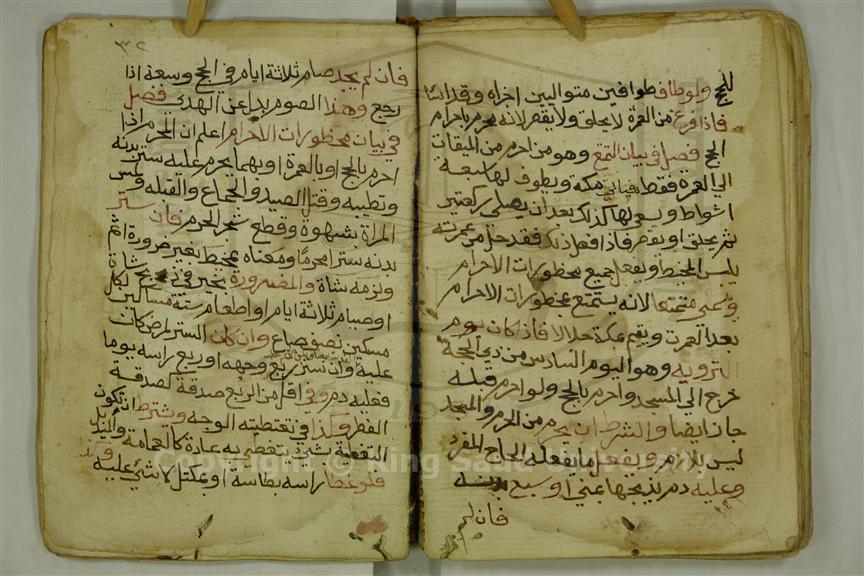 للحج ولو طاف طوافين متواليين اجزاه وقد اساء
فاذا فرغ من العمرة لا يحلق ولا يقصر لانه محرم باحرام
الحج فصل في بيان التمتع وهو من احرم من الميقات
الي العمرة فقط فياتي مكة ويطوف لها سبعة
اشواط ويسعي لها كذلك بعد ان يصلي ركعتين
ثم يحلق او يقصر فاذا فعل ذلك فقد حل من عمرته
يلبس المخيط ويفعل جميع محظورات الاحرام
وسمي متمتعا لانه يتمتع بمحظورات الاحرام
بعد العمرت ويقيم بمكة حلالا فاذا كان يوم
التروية وهو اليوم السادس من ذي الحجة
خرج الي المسجد واحرم بالحج ولو احرم قبله
جاز ايضا والشرط ان يحرم من الحرم والمسجد
ليس بلازم ويفعل ما يفعله الحاج المفرد
وعليه دم يذبحها بمني او سبع بدنة
فان لم
٣٢
فان لم يجد صيام ثلاثة ايام في الحج وسبعة اذا
رجع وهذا الصوم بدل عن الهدي فصل
في بيان محظورات الاحرام اعلم ان المحرم اذا
احرم بالحج او بالعمرة او بهما يحرم عليه ستر بدنه
وتطيبه وقتل الصيد والجماع والقبلة ولمس
المراة بشهوة وقطع شجر الحرم فان ستر
بدنه سترا محرما ومعناه بمخيط بغير ضرورة اثم
ولزمه شاة والمضرورة تخير في ذبح شاة
او صيام ثلاثة ايام او اطعام ستة مساكين لكل
مسكين نصف صاع وان كان الستر لمرض كان
عليه وان ستر ربع وجهه او ربع راسه يوما
فعليه دم وفي اقل من الربع صدقة كصدقة
الفطر وكذا في تغطيته الوجه ويشترط ان تكون
التغطية بشئ يتغطي به عادة كالعمامة والمنديل
فلو غطا راسه بطاسة او عكتل لا شئ عليه وكذا
Copyright © King Saud University